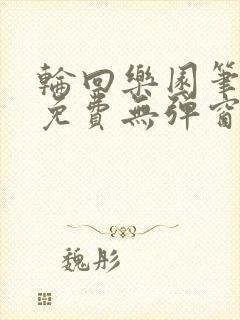 輪回樂園筆
免費無彈窗
魏彤